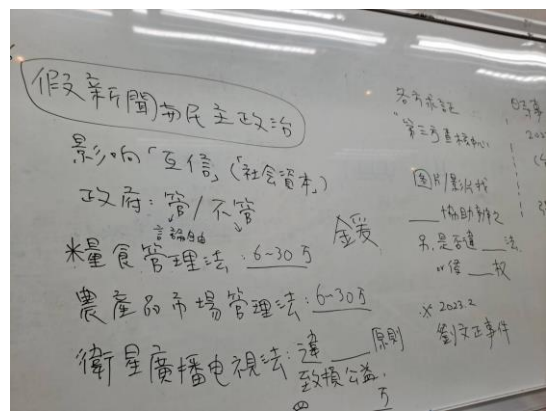 假新聞与民主政治
影响「互信」(「社会資本」)
政府:管/不管
言論自由
鍰
※量食管理法:6~30万
農產品市場管理法:6~30万
衛星廣播电視法:違___原則
致損公益,
万
各方求証
"第三方查核中心"
圖片/影片找
___協助事之
另,是否違___法
or侵___权
※2023.2
劉文正事件
時事